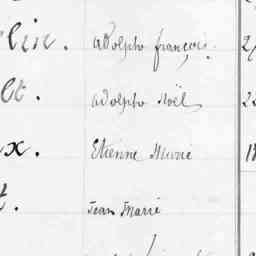 lin. Adolphe françois. 2
let. Adolphe Noël 22
x. Etienne Marie 18
t. Jean Marie